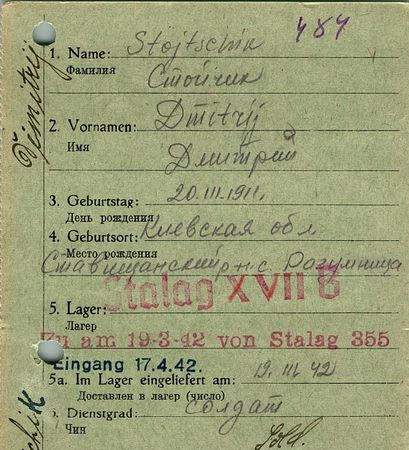 484
1. Name: Stojtschik
Фамилия Стойчик
Dimitrij
2. Vornamen: Dmitrij
Имя Дмитрий
3. Geburtstag: 20.III.1911.
День рождения
4. Geburtsort: Киевская обл
Место рождения
Ставищанский р-н с Розумница
Stalag XVII B
5. Lager:
Лагер
Zu am 19-3-42 von Stalag 355
Eingang 17.4.42.
5a. Im Lager eingeliefert am: 19. III 42
Доставлен в лагер (число)
Dienstgrad: солдат
Чин Sold.